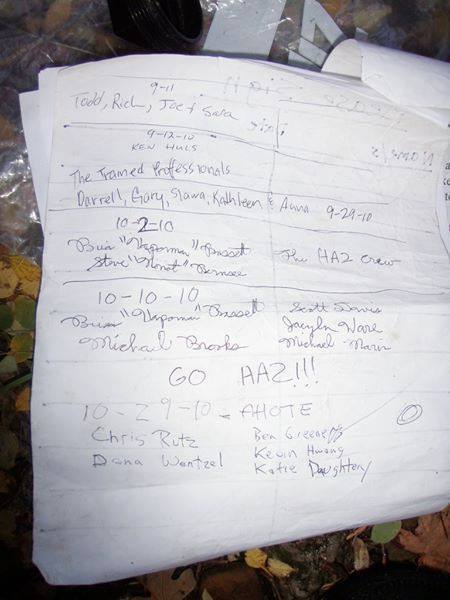 9-11
Todd, Rich, Joe & Sara
9-12-10
KEN HULS
The Trained Professionals
Darrell, Gary, Slawa, Kathleen & Anna 9-29-10
10-2-10
"Vaporman" Bassett The HAZ Crew
Steve
10-10-10
"Vaporman" Bassett Scott Davis
Jacyln Ware
Michael Brooks Michael Marin
GO HAZ!!!
10-29-10 - AHOTE
Chris Rutz Ben Greene
Kevin Hwang
Dana Wentzel Katie Daughtery